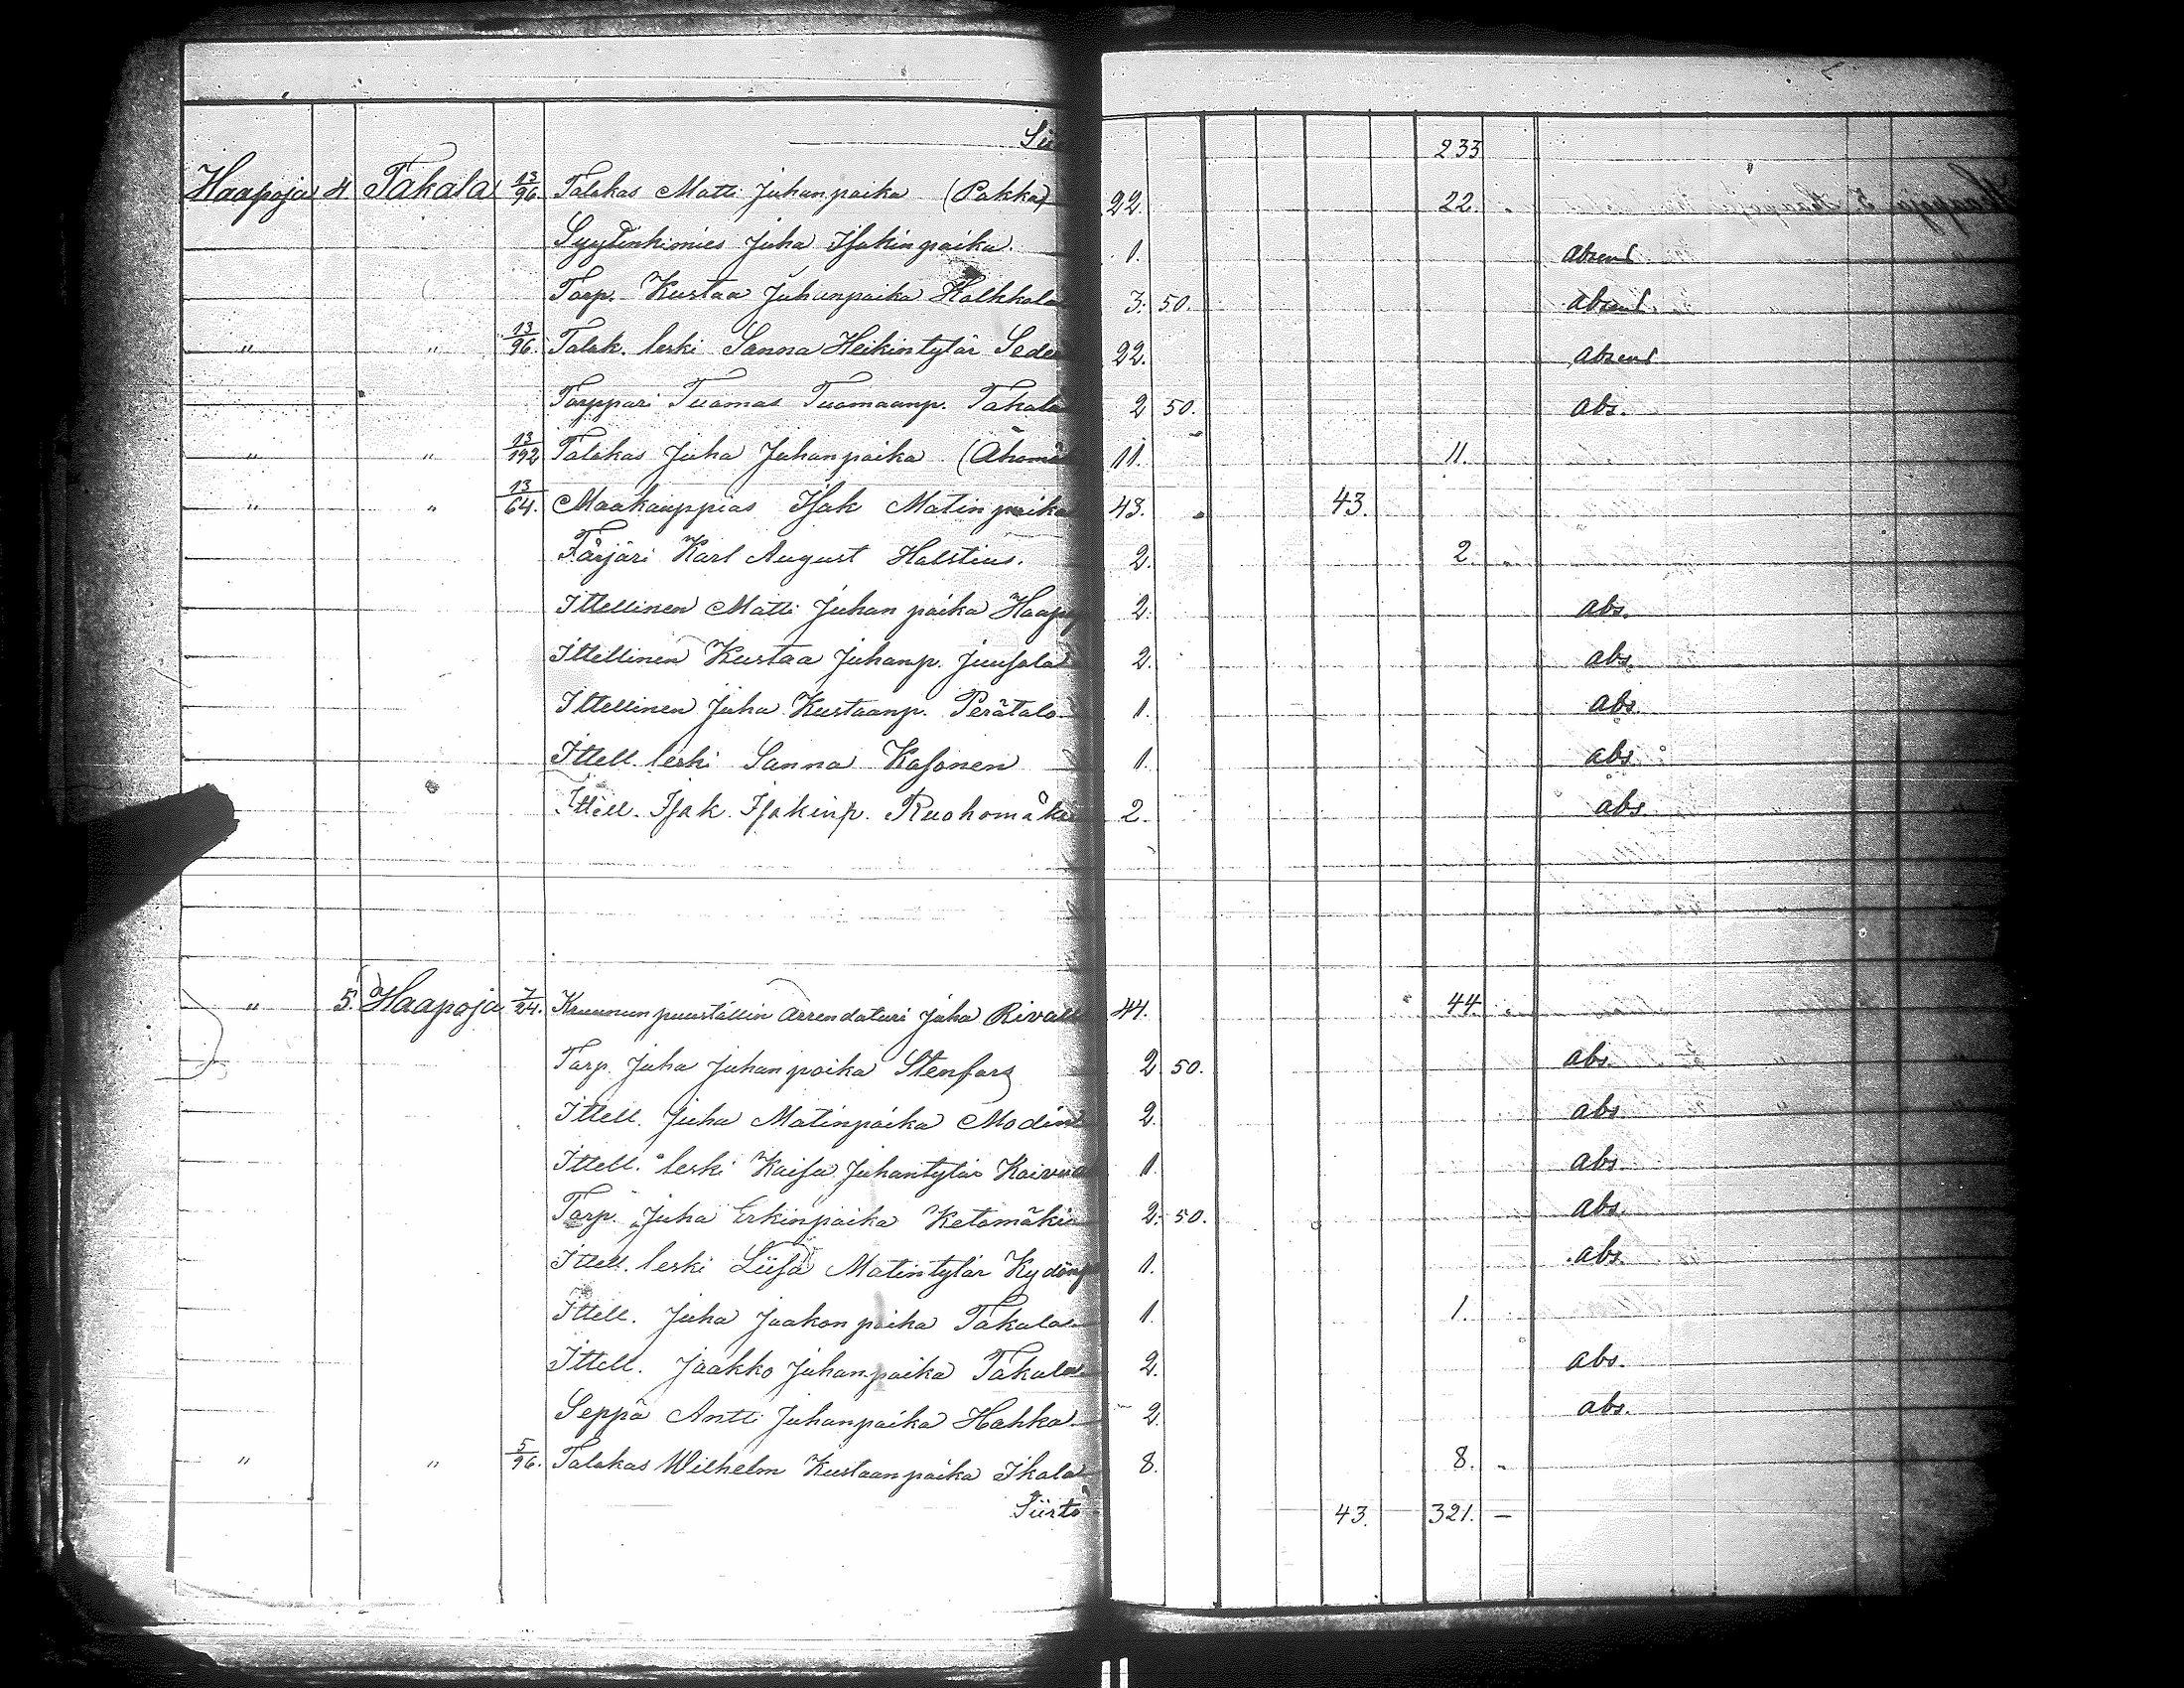 233
Haapoja 4 Takala 13/96 Talokas Matti Juhanpoika (Pakka) 22. 22.
Syytinkimies Juha Isakinpoika. 1. absent
Torp. Kustaa Juhanpoika 3. 50. absent.
" " 13/96. Talok. leski Sanna Heikintytär 22. absent
Torppari Tuomas Tuomaanp. Takala 2 50. abs.
" " 13/192 Talokas Juha Juhanpoika 11. 11.
" " 13/64. Maakauppias Isak Matinpoika 43. 43.
Färjäri Karl August Halstius. 2. 2.
Ittellinen Matti Juhanpoika 2. abs.
Ittellinen Kustaa Juhanp. Juusala 2. abs.
Ittellinen Juha Kustaanp. Perätalo 1. abs.
Ittell. leski Sanna Kasonen 1. abs.
Ittell. Isak Isakinp. Ruohomäki 2. abs.
" 5. Haapoja 7/24. Kruunun puuställin Arrendaturi Juha 44. 44.
Torp. Juha Juhanpoika Stenfors 2 50. abs.
Ittell. Juha Matinpoika 2. abs.
Ittell. leski Kaisa Juhantytär 1. abs.
Torp. Juha Erkinpoika Ketomäki 2. 50. abs.
Ittell. leski Liisa Matintytär 1. abs.
Ittell. Juha Jaakonpoika Takala 1. 1.
Ittell. Jaakko Juhanpoika Takala 2. abs.
Seppä Antti Juhanpoika Hahka 2. abs.
" " 5/96. Talokas Wilhelm Kustaanpoika Ikala 8. 8.
Siirto 43. 321. —